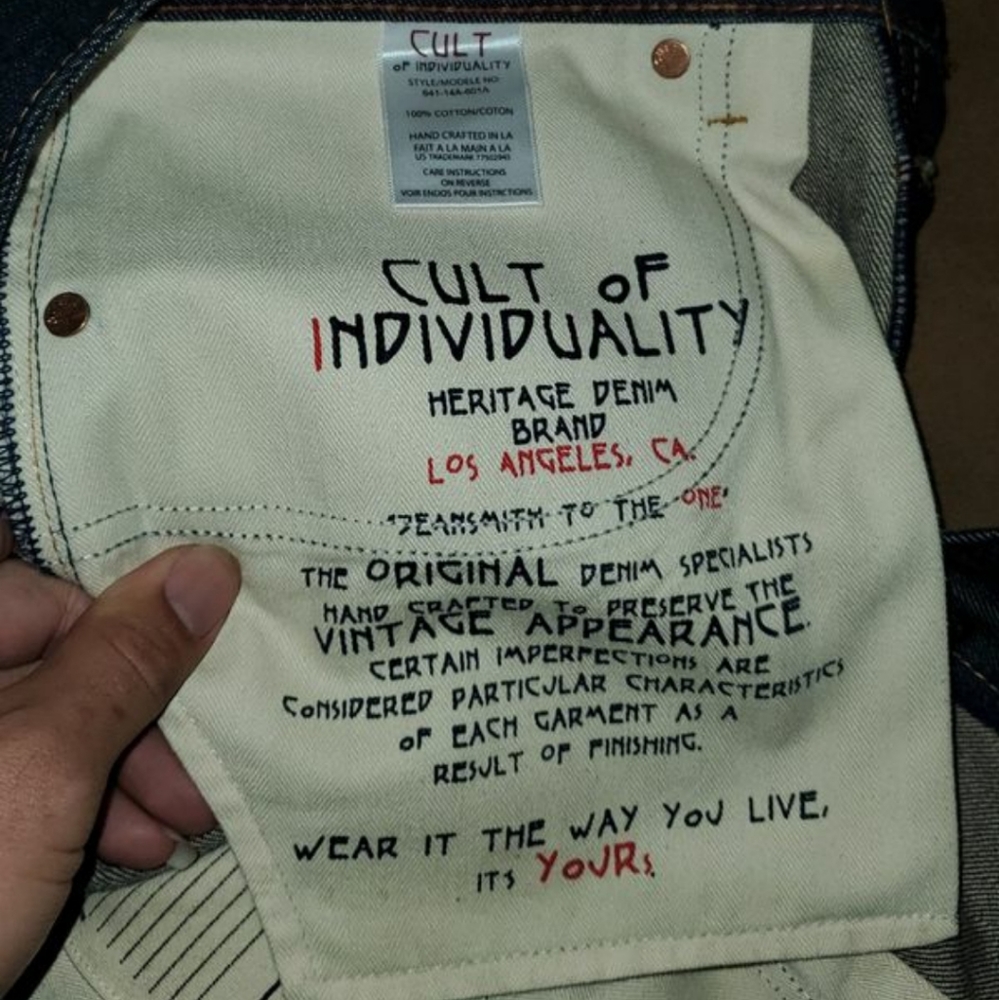 CULT
OF INDIVIDUALITY
STYLE/MODELE NO:
641-14A-601A
100% COTTON/COTON
HAND CRAFTED IN LA
FAIT A LA MAIN A LA
US TRADEMARK 77502940
CARE INSTRUCTIONS
ON REVERSE
VOIR ENDOS POUR INSTRCTIONS
CULT OF
INDIVIDUALITY
HERITAGE DENIM
BRAND
LOS ANGELES, CA.
"JEANSMITH TO THE "ONE"
THE ORIGINAL DENIM SPECIALISTS
HAND CRAFTED TO PRESERVE THE
VINTAGE APPEARANCE.
CERTAIN IMPERFECTIONS ARE
CONSIDERED PARTICULAR CHARACTERISTICS
OF EACH GARMENT AS A
RESULT OF FINISHING.
WEAR IT THE WAY YOU LIVE,
ITS YOURS.